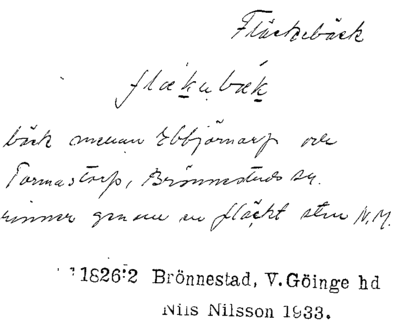 Fläckebäck
flækubæk
bäck mellan Ebbjörnarp och
Tormastorp, Brönnestads sn.
rinner genom en fläckt sten N.M.
1826:2 Brönnestad, V.Göinge hd
Nils Nilsson 1933.